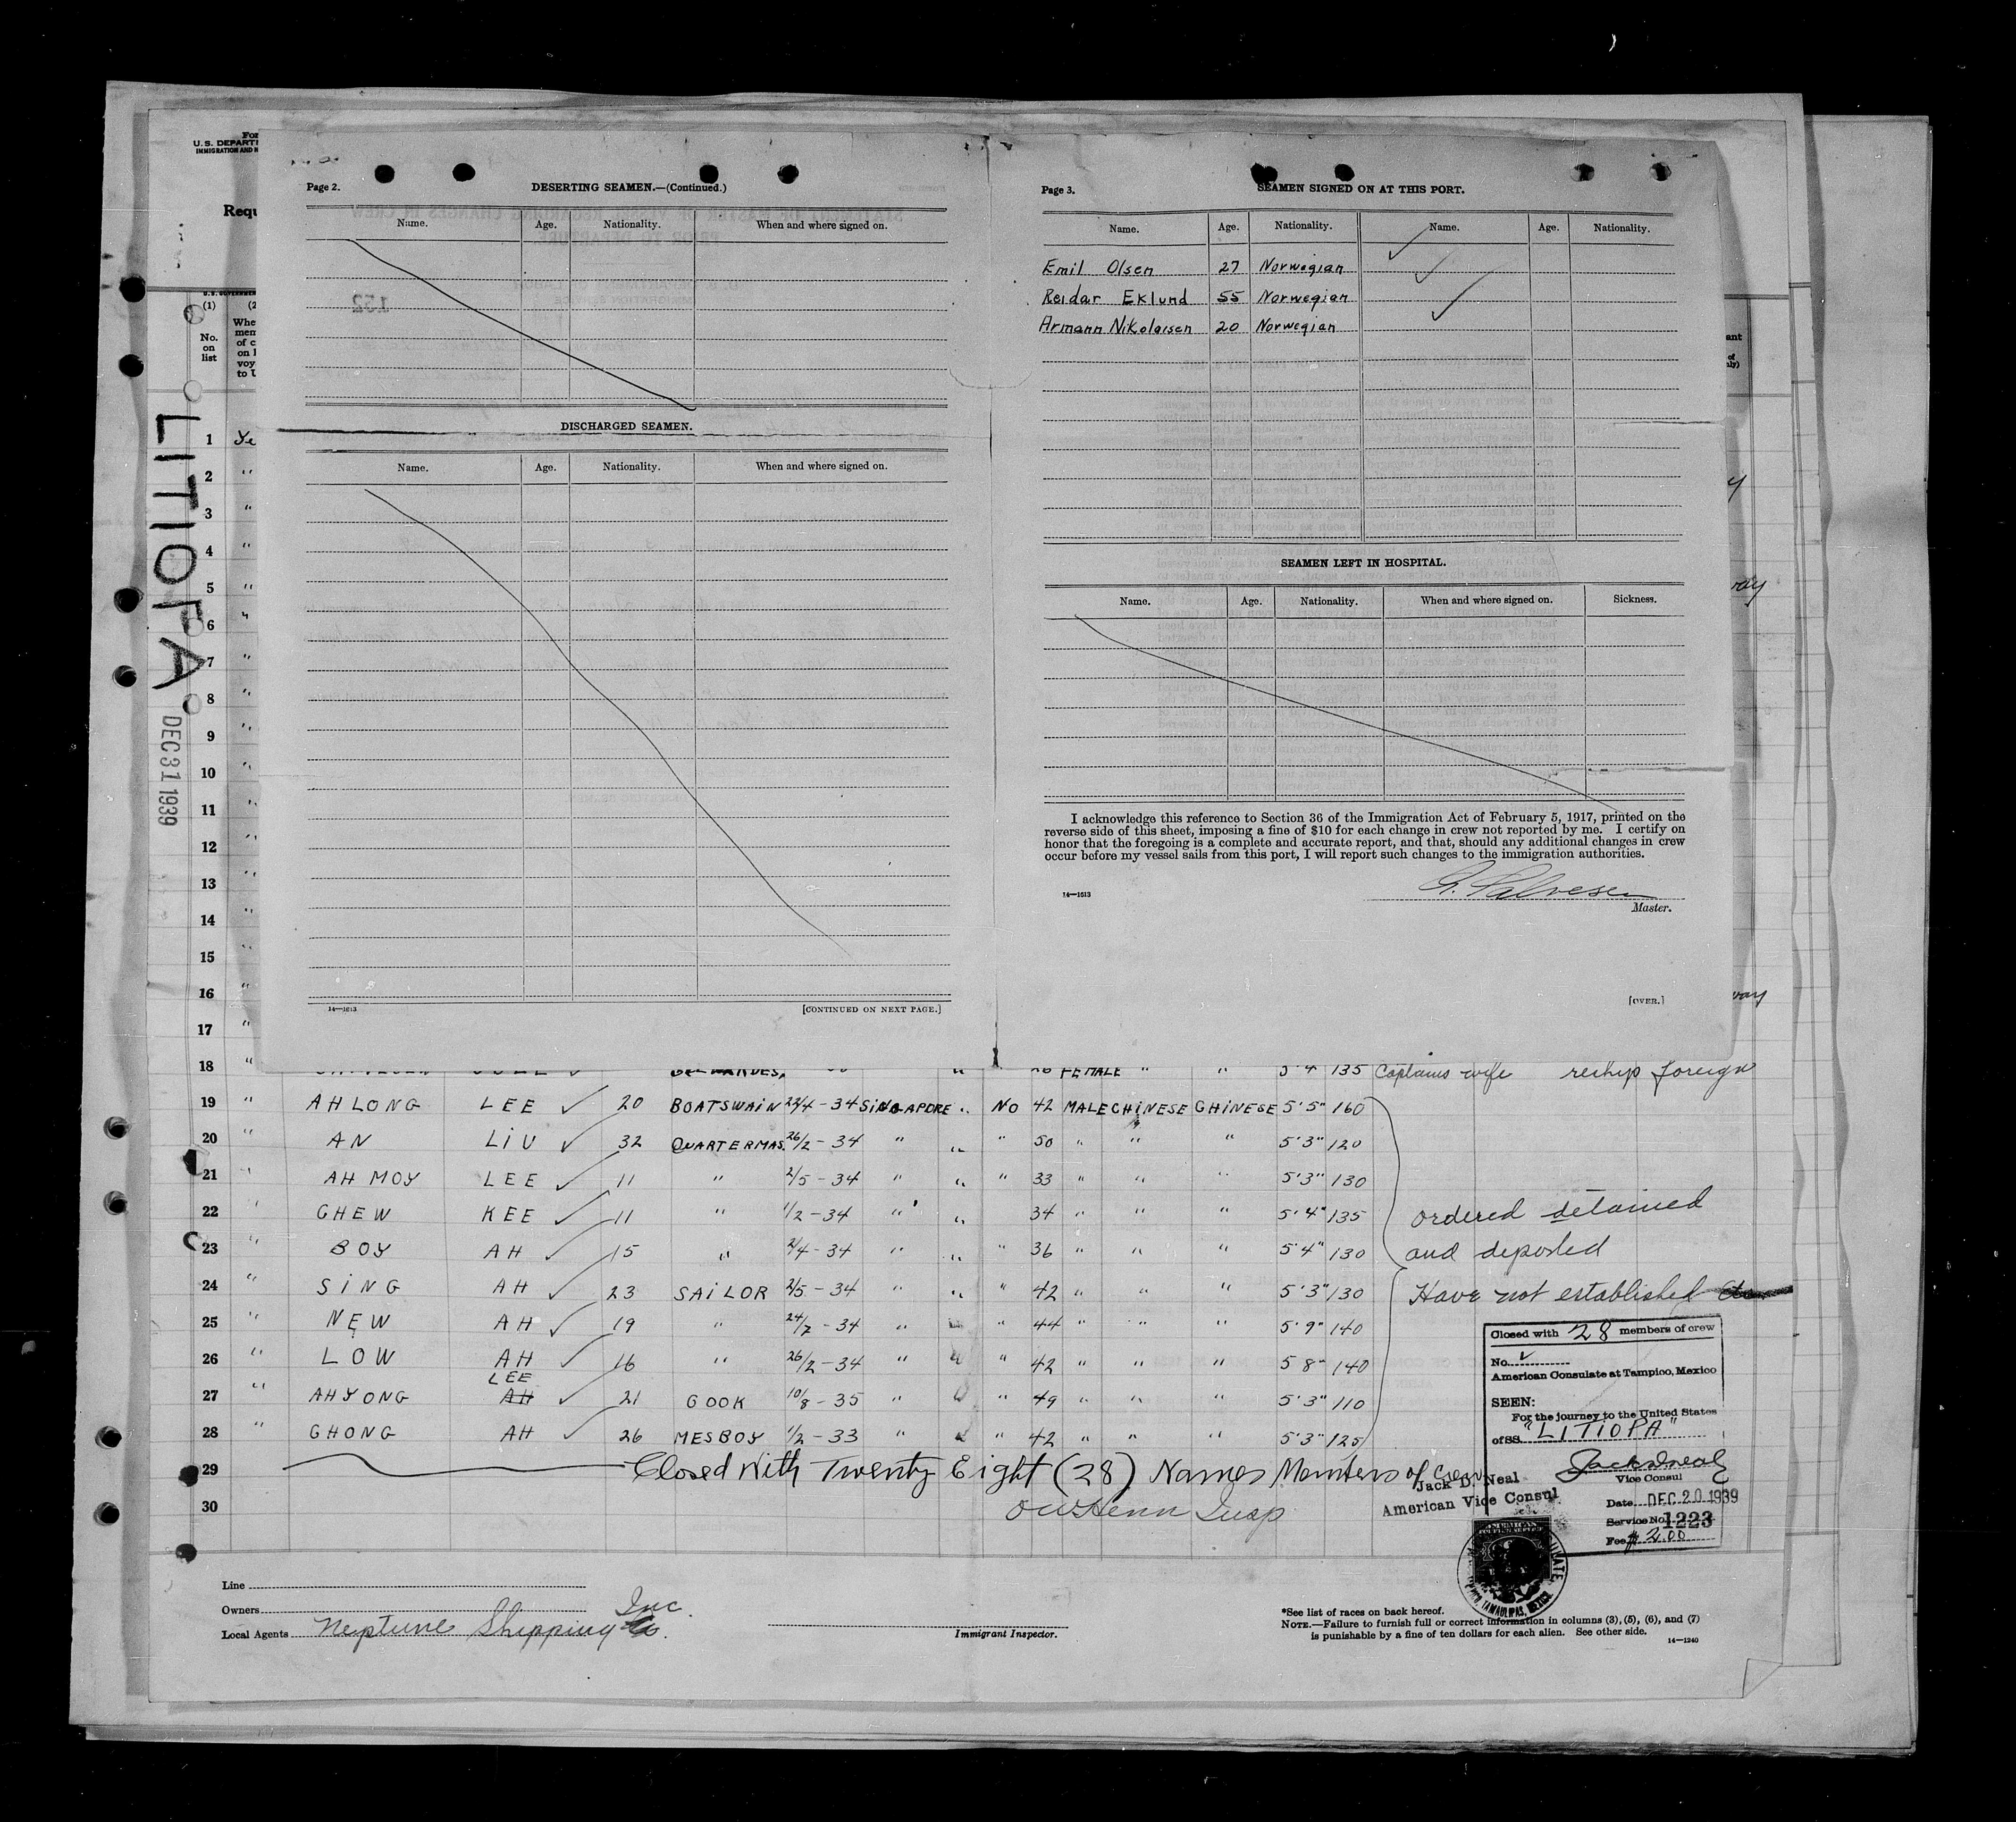 For
U.S. DEPART
IMMIGRATION AND N
Requ
(1)
No.
on
list
Whe
mem
of c
on l
voy
to U
LITIOPA
DEC 31 1939
Page 2.
DESERTING SEAMEN.—(Continued.)
Name. Age. Nationality. When and where signed on.
DISCHARGED SEAMEN.
Name. Age. Nationality. When and where signed on.
14—1613
[CONTINUED ON NEXT PAGE.]
Page 3.
SEAMEN SIGNED ON AT THIS PORT.
Name. Age. Nationality. Name. Age. Nationality.
Emil Olsen 27 Norwegian
Reidar Eklund 55 Norwegian
Armann Nikolaisen 20 Norwegian
SEAMEN LEFT IN HOSPITAL.
Name. Age. Nationality. When and where signed on. Sickness.
I acknowledge this reference to Section 36 of the Immigration Act of February 5, 1917, printed on the
reverse side of this sheet, imposing a fine of $10 for each change in crew not reported by me. I certify on
honor that the foregoing is a complete and accurate report, and that, should any additional changes in crew
occur before my vessel sails from this port, I will report such changes to the immigration authorities.
14—1613
Salvesen
Master.
[OVER.]
1 Ye
2 "
3 "
4 "
5 "
6 "
7 "
8 "
9 "
10 "
11 "
12 "
13 "
14 "
15 "
16 "
17 "
18 " FEMALE " " 5'4" 135 Captains wife reship foreign
19 " AH LONG LEE 20 BOATSWAIN 22/4-34 SINGAPORE " NO 42 MALE CHINESE CHINESE 5'5" 160
20 " AN LIU 32 QUARTERMAS. 26/2-34 " " " 50 " " " 5'3" 120
21 " AH MOY LEE 11 " 2/5-34 " " " 33 " " " 5'3" 130
22 " CHEW KEE 11 " 1/2-34 " " 34 " " " 5'4" 135
23 " BOY AH 15 " 2/4-34 " " " 36 " " " 5'4" 130
24 " SING AH 23 SAILOR 2/5-34 " " " 42 " " " 5'3" 130
25 " NEW AH 19 " 24/7-34 " " " 44 " " " 5'9" 140
26 " LOW AH 16 " 26/2-34 " " " 42 " " " 5 8" 140
LEE
27 " AH YONG AH 21 COOK 10/8-35 " " " 49 " " " 5'3" 110
28 " CHONG AH 26 MESBOY 1/2-33 " " " 42 " " " 5'3" 125
ordered detained
and deported
Have not established
29 Closed With Twenty Eight (28) Names Members of Crew
30 Insp
Closed with 28 members of crew
No.
American Consulate at Tampico, Mexico
SEEN:
For the journey to the United States
of SS. "LITIOPA"
Jack D Neal
Vice Consul
Jack D. Neal
American Vice Consul
Date DEC 20 1939
Service No. 1223
Fee $ 2.00
TAMAULIPAS, MEXICO
Line
Owners
Local Agents Neptune Shipping Co. Inc.
Immigrant Inspector.
*See list of races on back hereof.
NOTE.—Failure to furnish full or correct information in columns (3), (5), (6), and (7)
is punishable by a fine of ten dollars for each alien. See other side.
14—1240